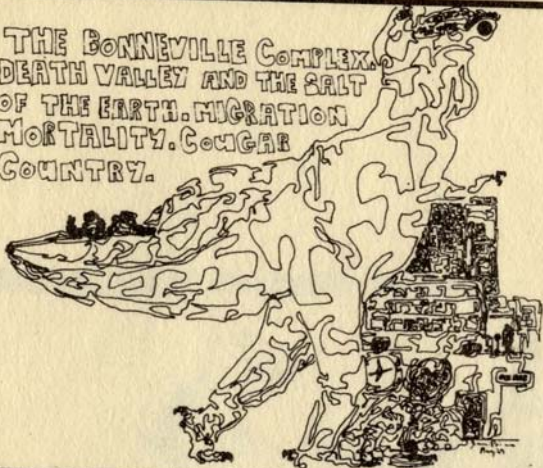 THE BONNEVILLE COMPLEX.
DEATH VALLEY AND THE SALT
OF THE EARTH. MIGRATION
MORTALITY. COUGAR
COUNTRY.